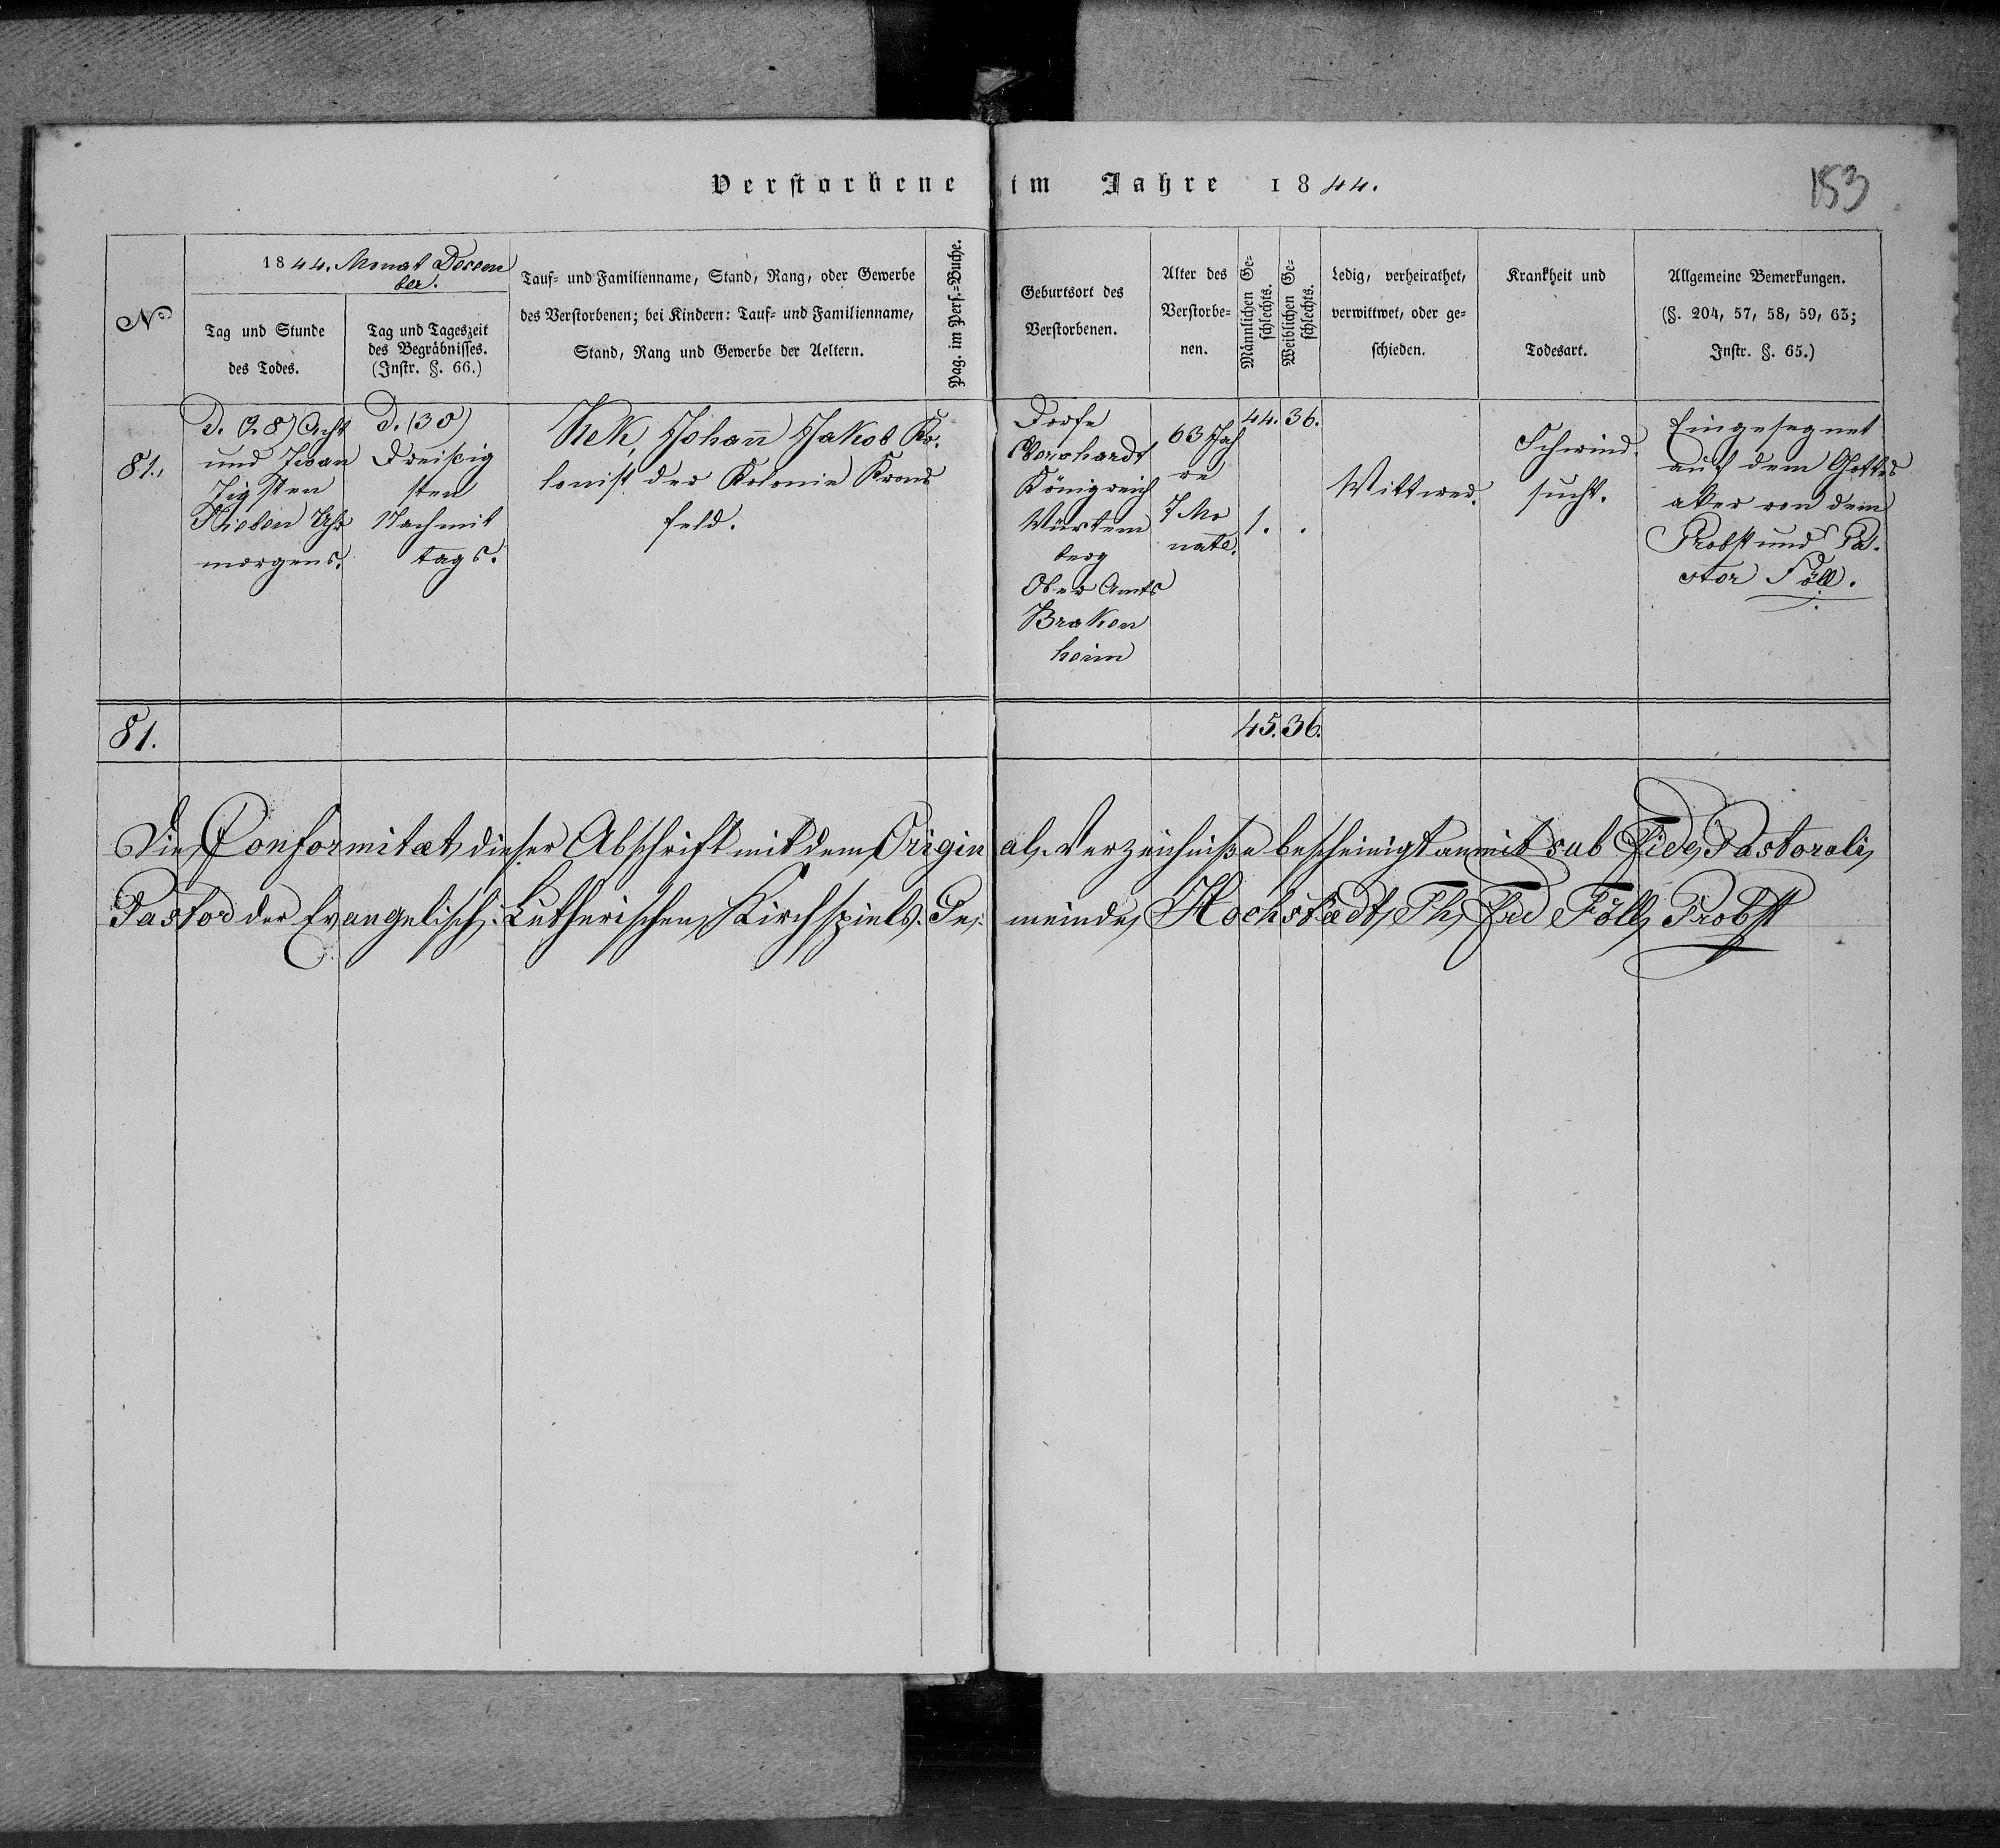 Verstorbene im Jahre 1844.
153
No
1844. Monat Decem
ber.
Tag und Stunde
des Todes.
Tag und Tageszeit
des Begräbnisses.
(Instr. §. 66.)
Tauf- und Familienname, Stand, Rang, oder Gewerbe
des Verstorbenen; bei Kindern: Tauf- und Familienname,
Stand, Rang und Gewerbe der Aeltern.
Pag. im Pers.-Buche.
Geburtsort des
Verstorbenen.
Alter des
Verstorbe-
nen.
Männlichen Ge-
schlechts.
Weiblichen Ge-
schlechts.
Ledig, verheirathet,
verwittwet, oder ge-
schieden.
Krankheit und
Todesart.
Allgemeine Bemerkungen.
(§. 204, 57, 58, 59, 63;
Instr. §. 65.)
81.
D. (28) Acht
und Zwan
zigsten
Sieben Uhr
morgens.
D. (30)
Dreißig
sten
Nachmit
tags.
Kek, Johann Jakob Ko.
lonist der Kolonie Krons
feld.
Dorfe
Königreich
Würtem
berg
Ober Amts
Braken
heim
63 Jah
re
7 Mo
nate.
44. 36.
1. .
Wittwer.
Schwind.
sucht.
Eingesegnet
auf dem Gottes
aker von dem
Probst und Pa.
stor Föll.
81.
45. 36.
Die Conformitæt dieser Abschrift mit dem Original. Verzeichniße bescheinigt anmit sub Fide Pastorali
Pastor der Evangelisch. Lutherischen Kirchspiels. Gemeinde Hochstædt, Th. Frd Föll, Probst